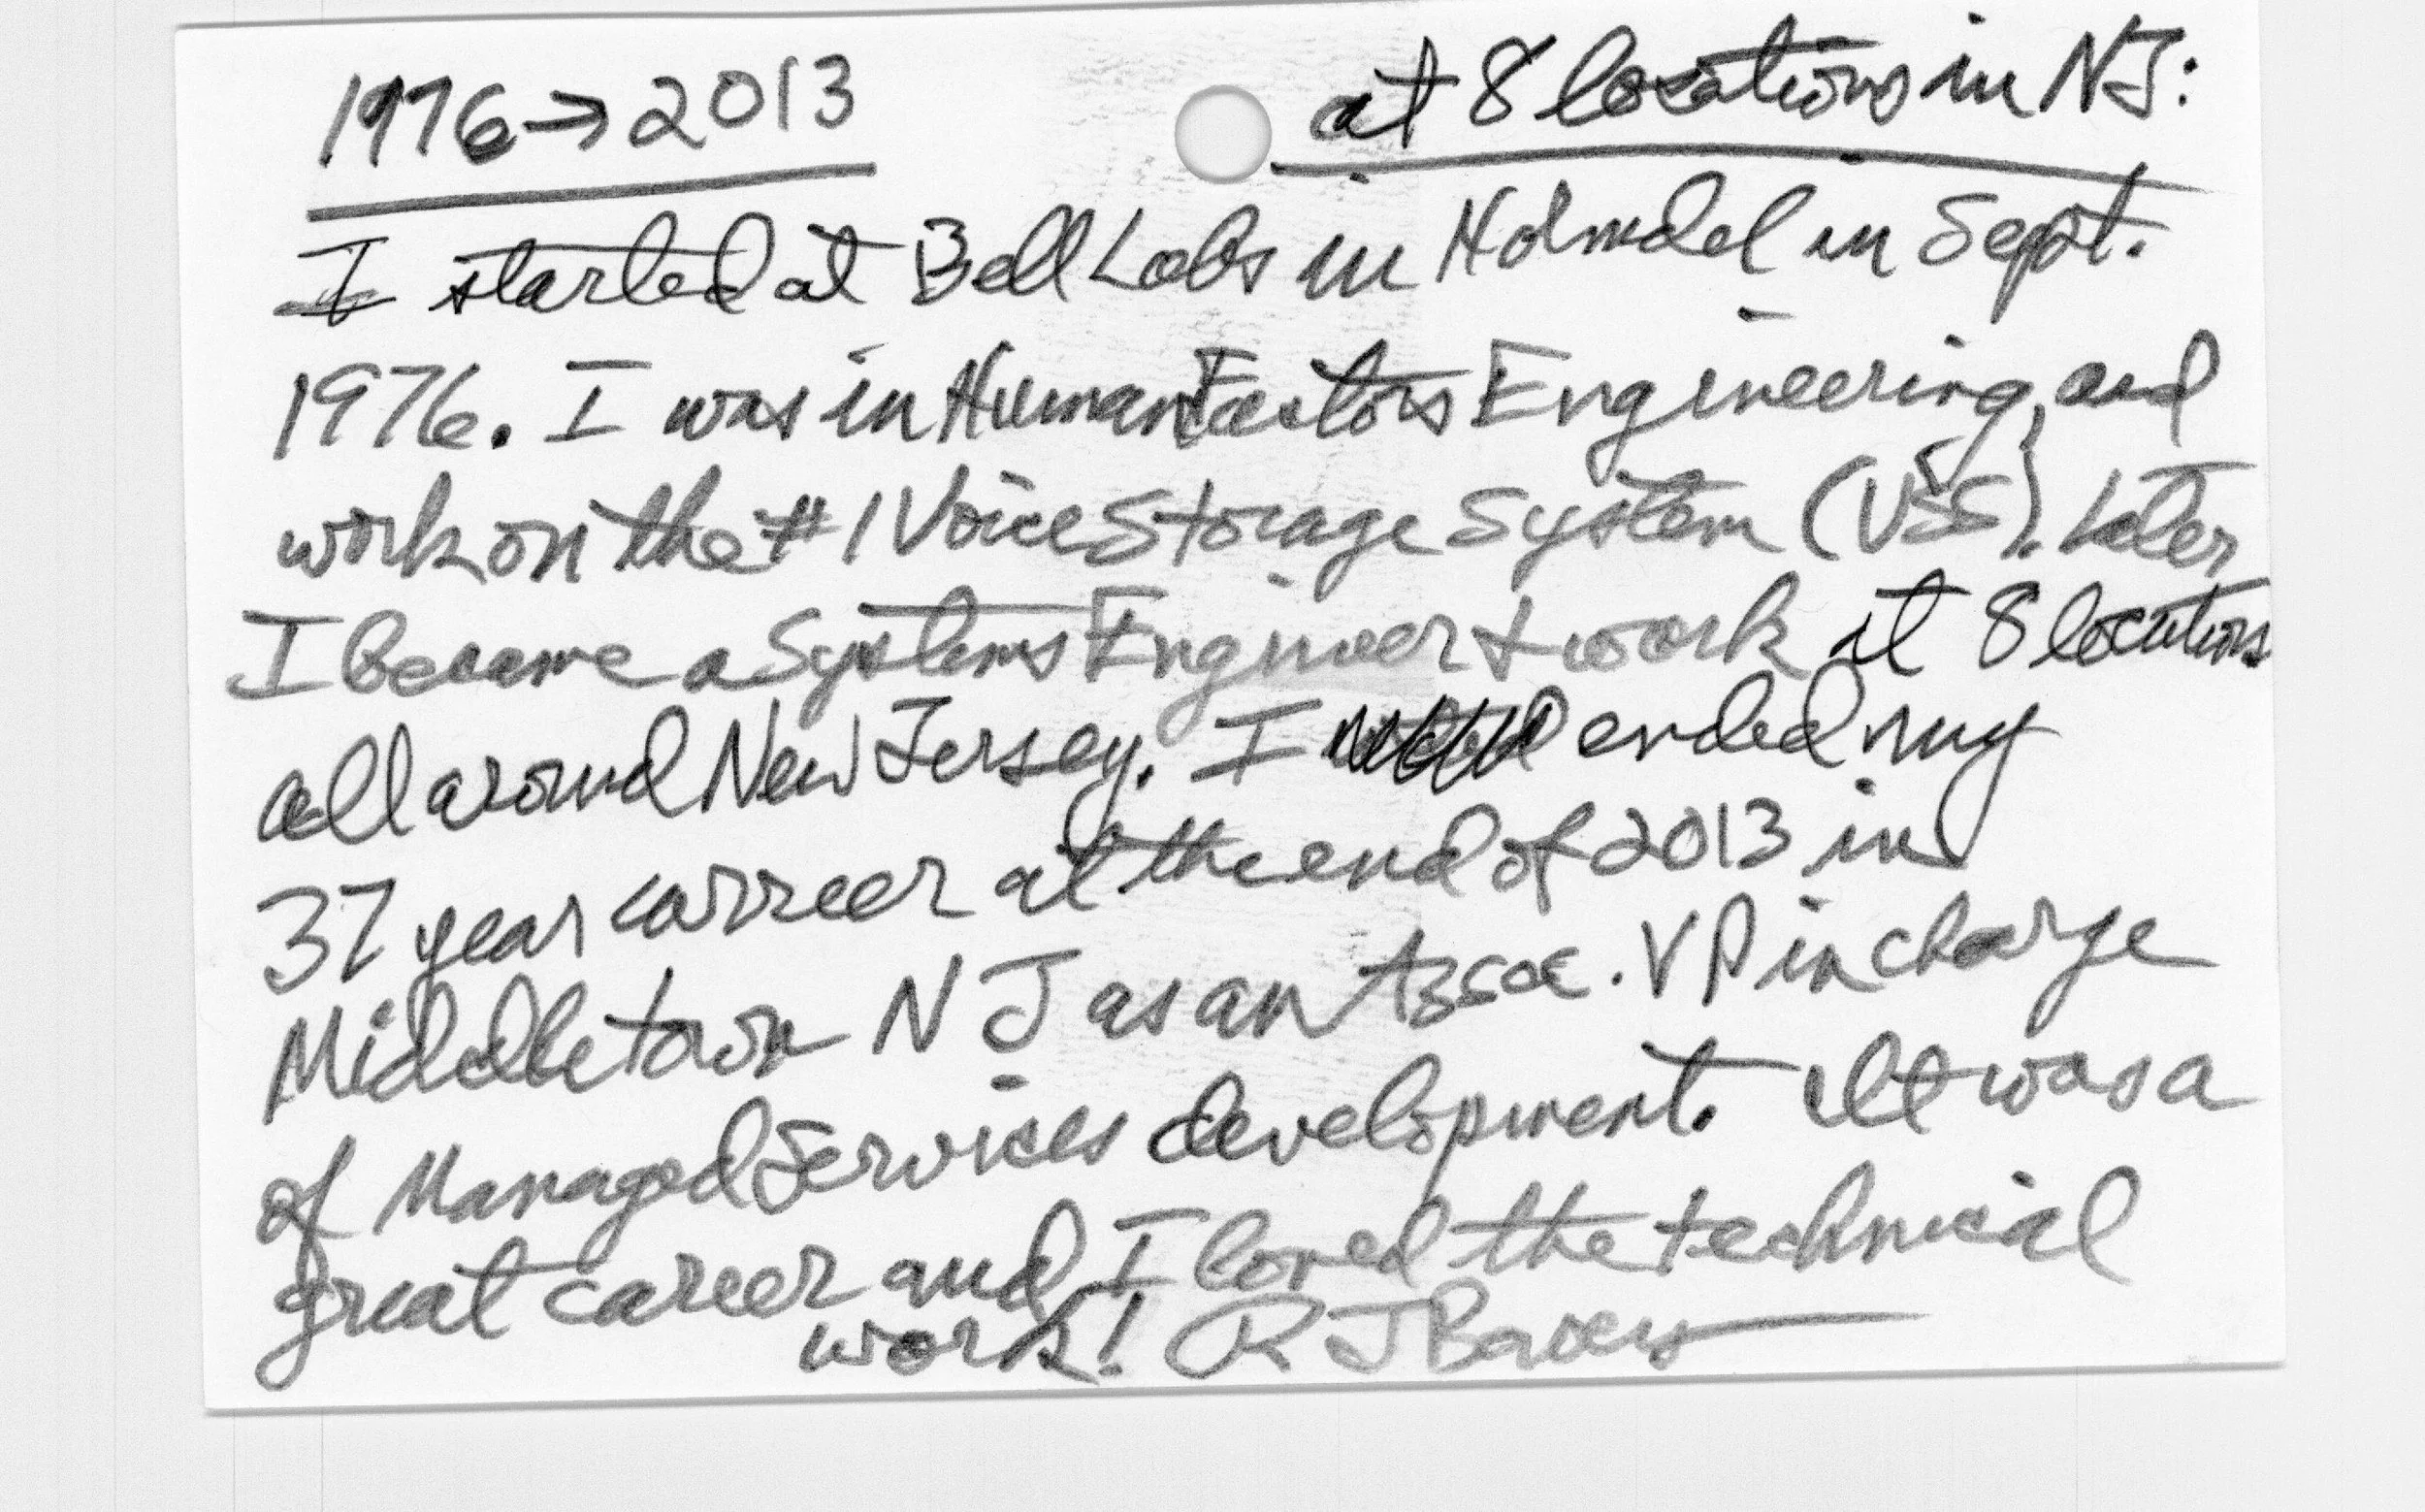 1976→2013 at 8 locations in NJ:
I started at Bell Labs in Holmdel in Sept.
1976. I was in Human Factors Engineering, and
work on the #1 Voice Storage System (VSS). Later
I became a Systems Engineer + work at 8 locations
all around New Jersey. I ended my
37 year carreer at the end of 2013 in
Middletown NJ as an Assoc. VP in charge
of Managed Services development. It was a
great career and I loved the technical
work! R J